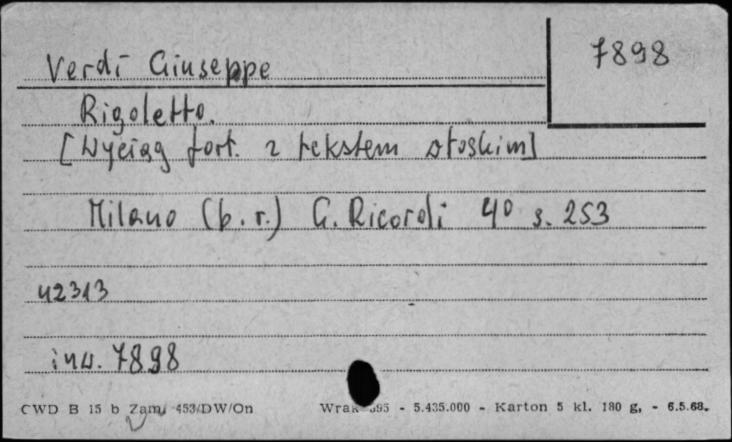 7898
Verdi Giuseppe
Rigoletto.
[Wyciąg fort. z tekstem włoskim]
Milano (b.r.) G. Ricordi 4° s. 253
42313
inw. 7898
CWD B 15 b Zam. 453/DW/On Wrak 595 - 5.435.000 - Karton 5 kl. 180 g, - 6.5.68.